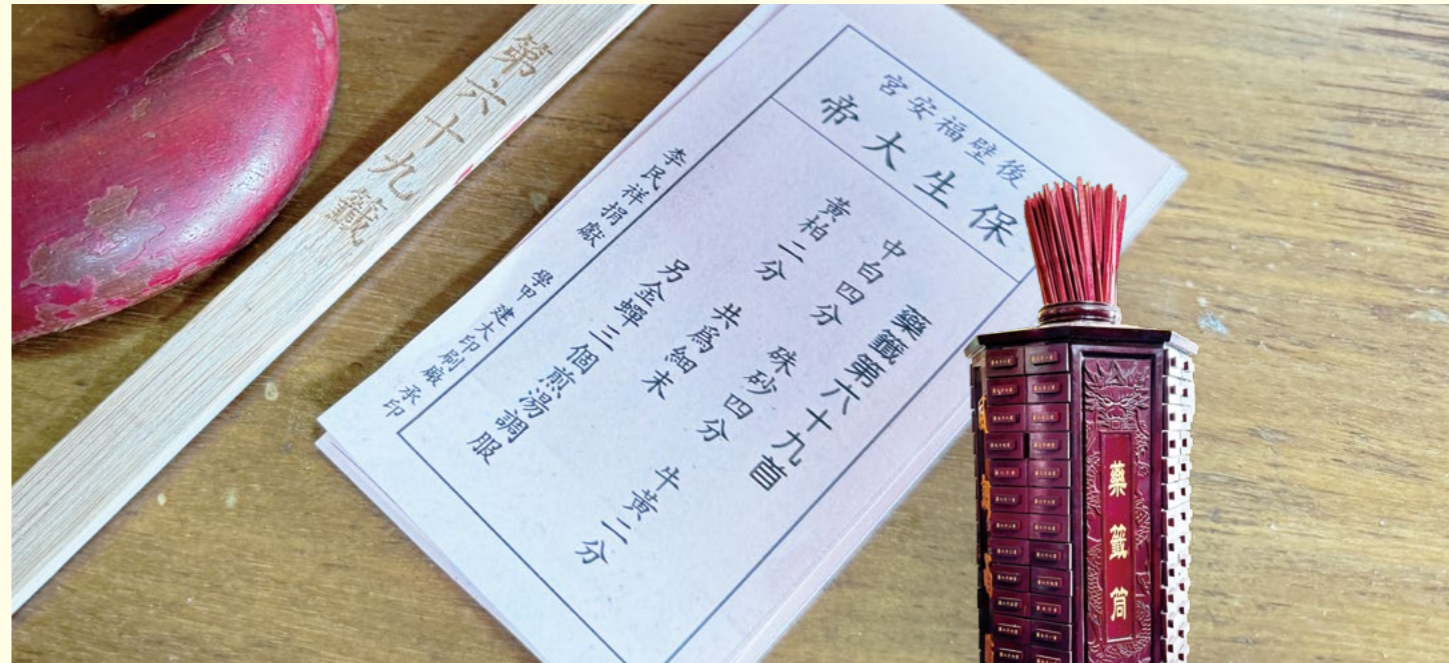 第六十九籤
後壁福安宮
保生大帝
藥籤第六十九首
中白四分 硃砂四分 牛黃二分
黃柏二分 共爲細末
另金蟬三個煎湯調服
李民祥捐獻 學甲建大印刷廠承印
藥籤筒